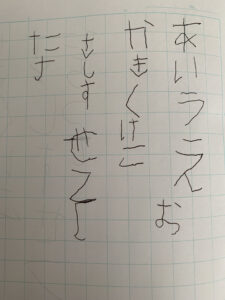 あいうえお
かきくけこ
さしすせそ
た